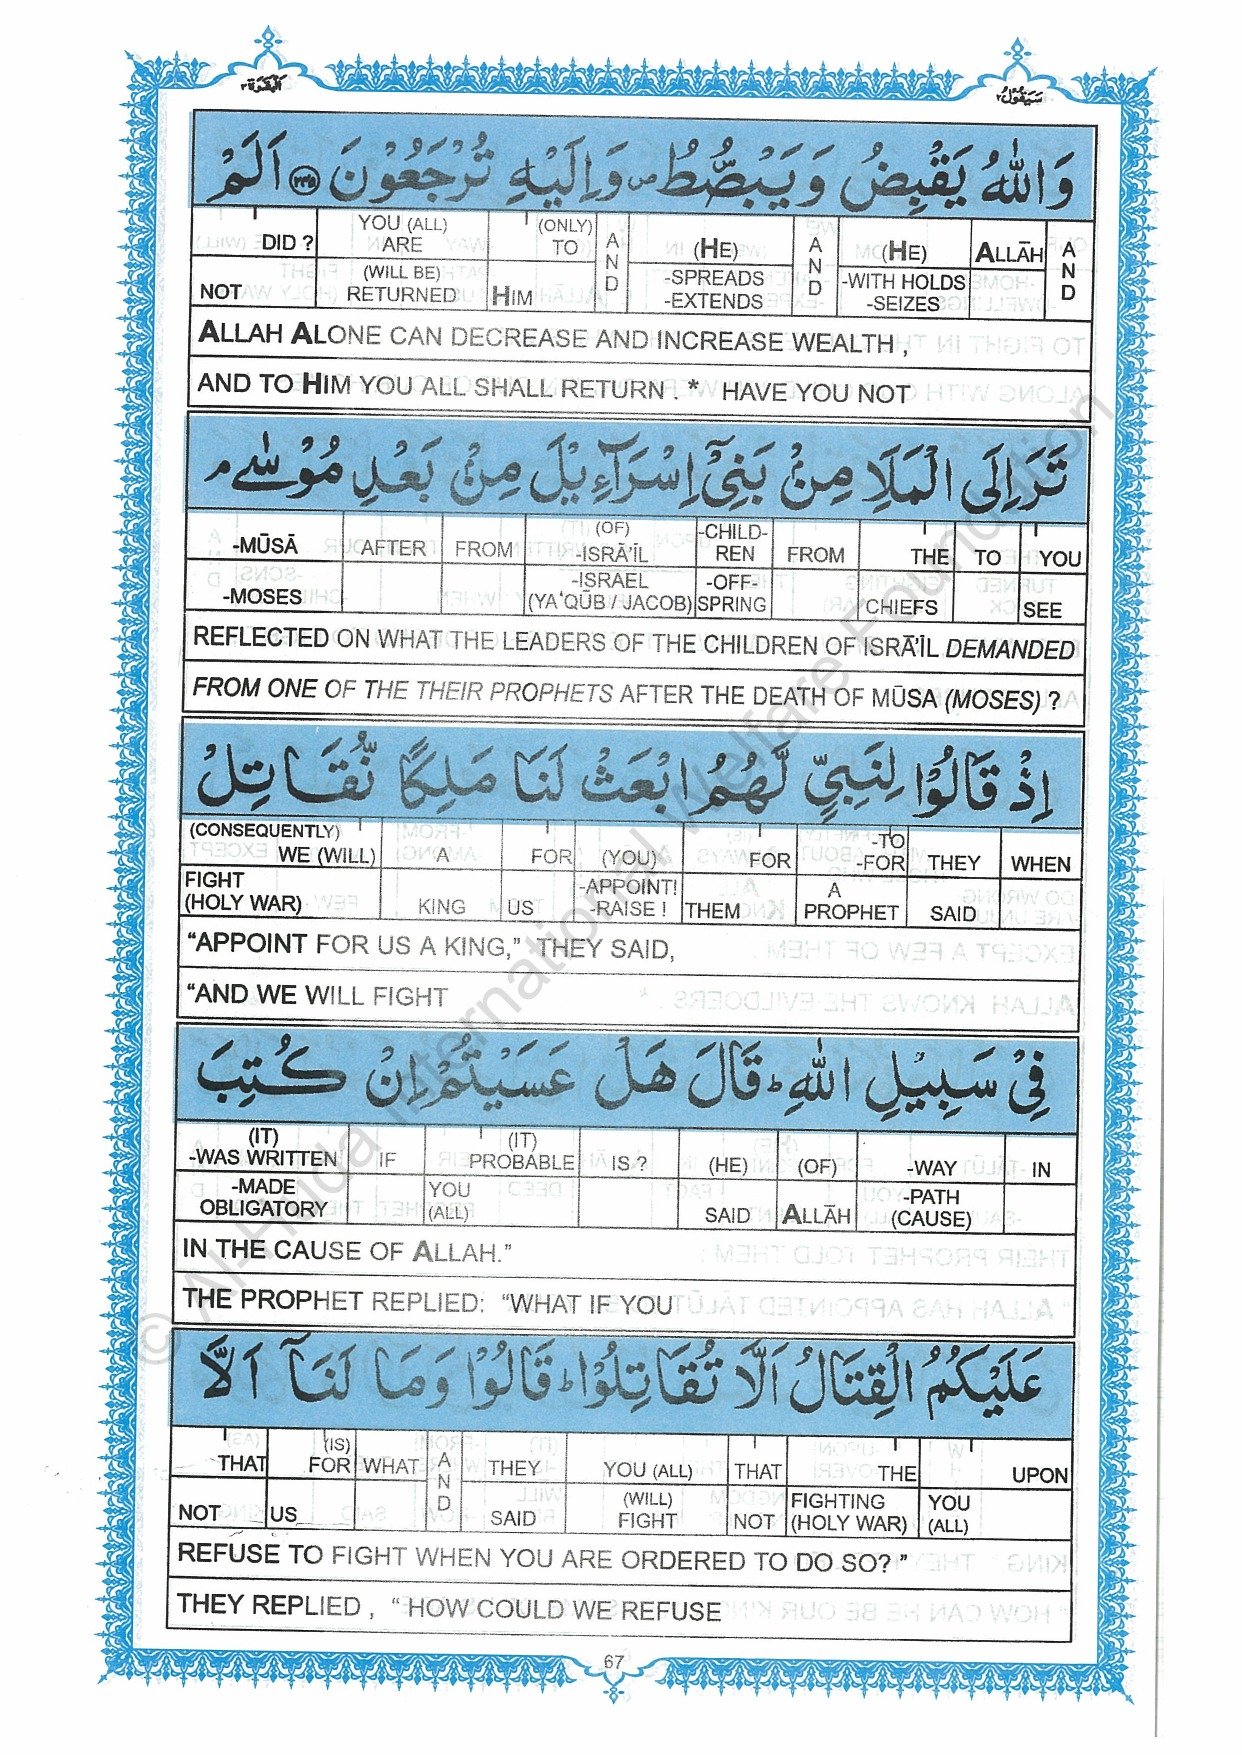 سَيَقُولُ ٢
اَلْبَقَرَة ٢
وَاللّٰهُ يَقْبِضُ وَيَبْصُۜطُ ۪ وَاِلَيْهِ تُرْجَعُوْنَ ﴿٢٤٥﴾ اَلَمْ
DID ? YOU (ALL) ARE (ONLY) TO AND (HE) AND (HE) ALLĀH AND
NOT (WILL BE) RETURNED HIM -SPREADS -EXTENDS -WITH HOLDS -SEIZES
ALLAH ALONE CAN DECREASE AND INCREASE WEALTH ,
AND TO HIM YOU ALL SHALL RETURN . * HAVE YOU NOT
تَرَ اِلَى الْمَلَاِ مِنْۢ بَنِيْٓ اِسْرَآءِيْلَ مِنْۢ بَعْدِ مُوْسٰى ۘ
-MŪSĀ AFTER FROM (OF) -ISRĀ’ĪL -CHILD-REN FROM THE TO YOU
-MOSES -ISRAEL (YA‘QŪB / JACOB) -OFF-SPRING CHIEFS SEE
REFLECTED ON WHAT THE LEADERS OF THE CHILDREN OF ISRĀ’ĪL DEMANDED
FROM ONE OF THE THEIR PROPHETS AFTER THE DEATH OF MŪSA (MOSES) ?
اِذْ قَالُوْا لِنَبِيٍّ لَّهُمُ ابْعَثْ لَنَا مَلِكًا نُّقَاتِلْ
(CONSEQUENTLY) WE (WILL) A FOR (YOU) FOR -TO -FOR THEY WHEN
FIGHT (HOLY WAR) KING US -APPOINT! -RAISE ! THEM A PROPHET SAID
“APPOINT FOR US A KING,” THEY SAID,
“AND WE WILL FIGHT
فِيْ سَبِيْلِ اللّٰهِ ؕ قَالَ هَلْ عَسَيْتُمْ اِنْ كُتِبَ
(IT) -WAS WRITTEN IF (IT) PROBABLE IS ? (HE) (OF) -WAY IN
-MADE OBLIGATORY YOU (ALL) SAID ALLĀH -PATH (CAUSE)
IN THE CAUSE OF ALLAH.”
THE PROPHET REPLIED: “WHAT IF YOU
عَلَيْكُمُ الْقِتَالُ اَلَّا تُقَاتِلُوْا ؕ قَالُوْا وَمَا لَنَآ اَلَّا
THAT (IS) FOR WHAT AND THEY YOU (ALL) THAT THE UPON
NOT US SAID (WILL) FIGHT NOT FIGHTING (HOLY WAR) YOU (ALL)
REFUSE TO FIGHT WHEN YOU ARE ORDERED TO DO SO? ”
THEY REPLIED , “ HOW COULD WE REFUSE
67
© Al-Huda International Welfare Foundation